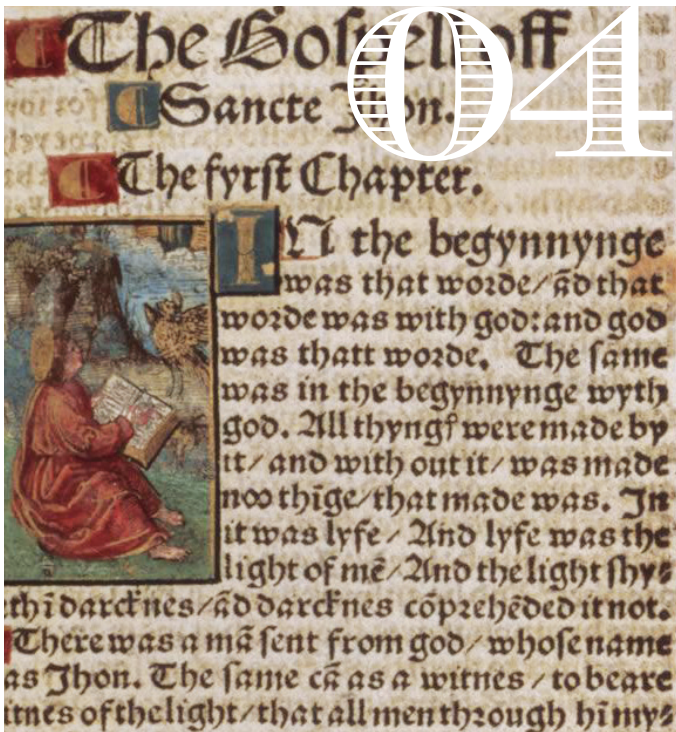 04
¶ The Gospell off
¶ Sancte Jhon.
¶ The fyrst Chapter.
IN the begynnynge
was that worde/ ād that
worde was with god: and god
was thatt worde. The same
was in the begynnynge wyth
god. All thyngꝭ were made by
it/ and with out it/ was made
noo thīge/ that made was. In
it was lyfe/ And lyfe was the
light of mē/ And the light shy⸗
th ī darcknes/ ād darcknes cōprehēded it not.
There was a mā sent from god/ whose name
as Jhon. The same cā as a witnes/ to beare
itnes of the light/ that all men through hī my⸗